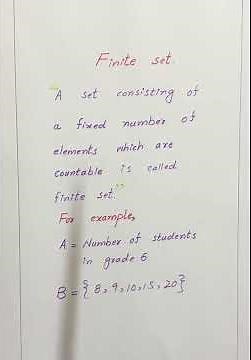 Finite set.
"A set consisting of
a fixed number of
elements which are
countable is called
finite set."
For example,
A = Number of students
in grade 6
B = { 8, 9, 10, 15, 20 }